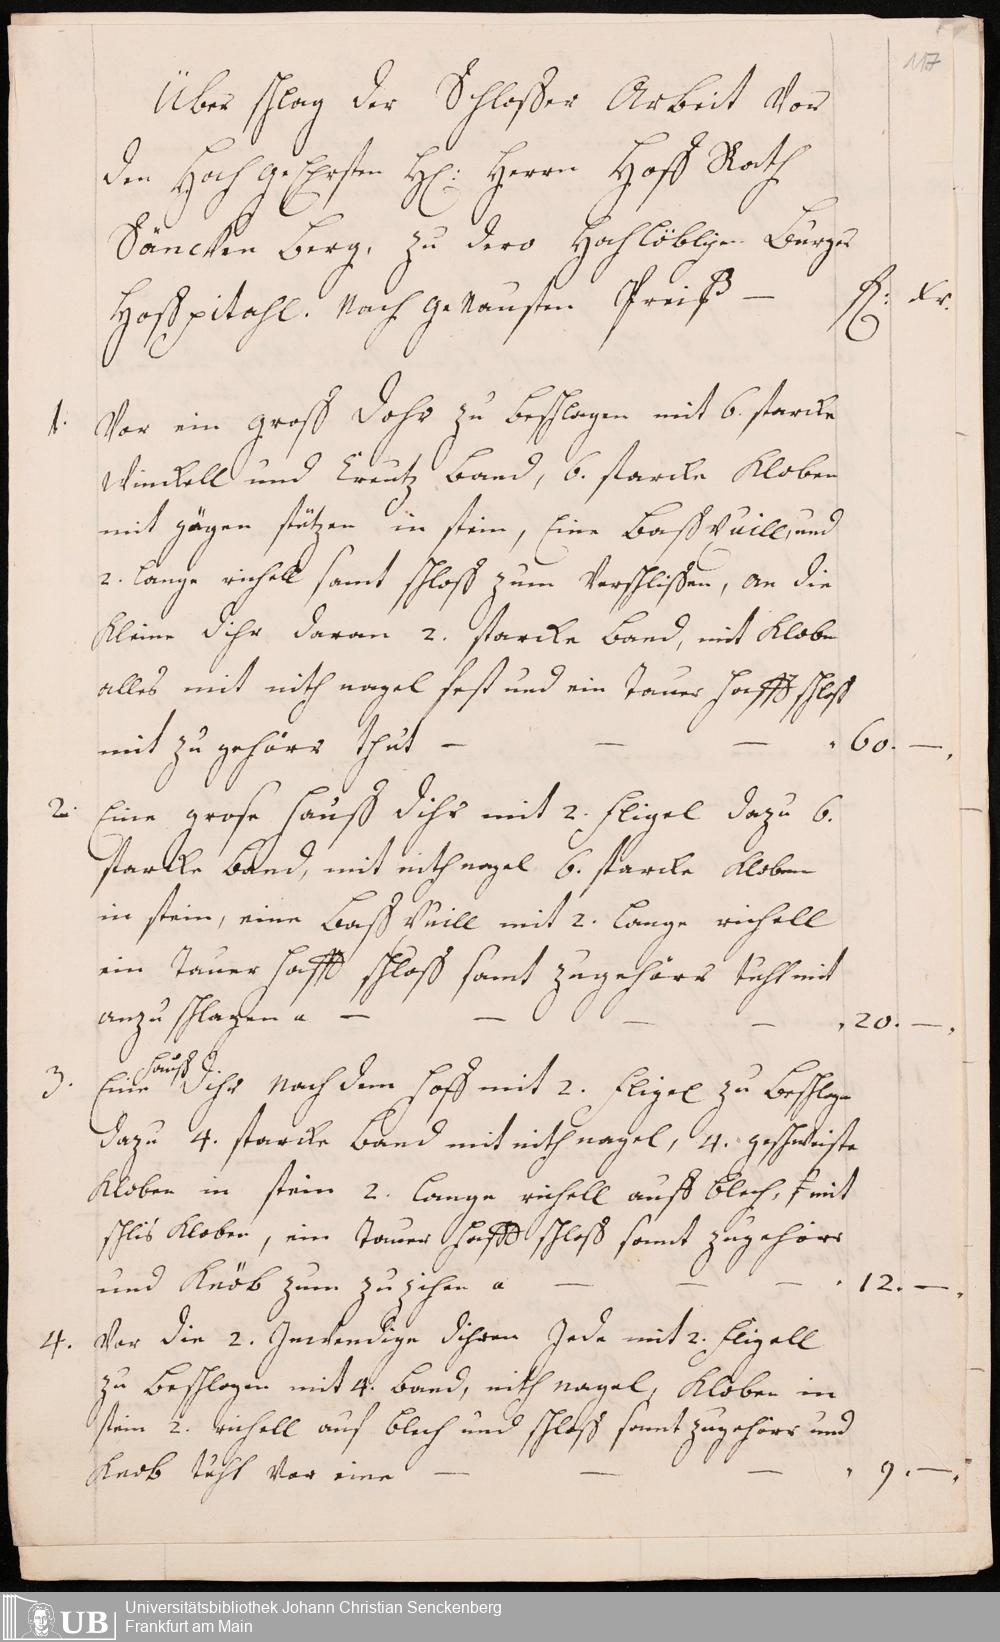 117
Über schlag der Schlosser Arbeit Vor
den Hoch geEhrsten HE: Herrn Hoff Rath
Säncken berg, zu dero Hochlöbligen Burger
Hosspitahl. Nach genausten Preiß — fl: xr.
1. Vor ein gross Dohr zu beschlagen mit 6. starcke
Winckell und Creutz band, 6. starcke Kloben
mit gägen stützen in stein, Eine Bass Vuill, und
2. lange richell samt schloss zum Verschlissen, an die
Kleine Dihr daran 2. starcke band, mit Kloben
alles mit nith nagel fest und ein Tauer hafft schloss
mit zu gehörr thut — — — 60. —.
2. Eine grose Hauss Dihr mit 2. fligel dazu 6.
starcke band, mit nith nagel 6. starcke Kloben
in stein, eine Bass Vuill mit 2. lange richell
ein Tauer hafft schloss samt zugehörr tuht mit
anzu schlagen a — — — — 20. —.
3. Eine Hauss Dihr nach dem hoff mit 2. fligel zu beschlagen
dazu 4. starcke band mit nith nagel, 4. geschweiste
Kloben in stein 2. lange richell auff blech, mit
schlis Kloben, ein Tauer hafft schloss samt zugehörr
und Knöb zum zu zihen a — — — 12. —.
4. Vor die 2. Inwendige dihren Jede mit 2. fligell
zu beschlagen mit 4. band, nith nagel, Kloben in
stein 2. richell auf blech und schloss samt zugehörr und
Knob tuht Vor eine — — — 9. —.
UB Universitätsbibliothek Johann Christian Senckenberg
Frankfurt am Main